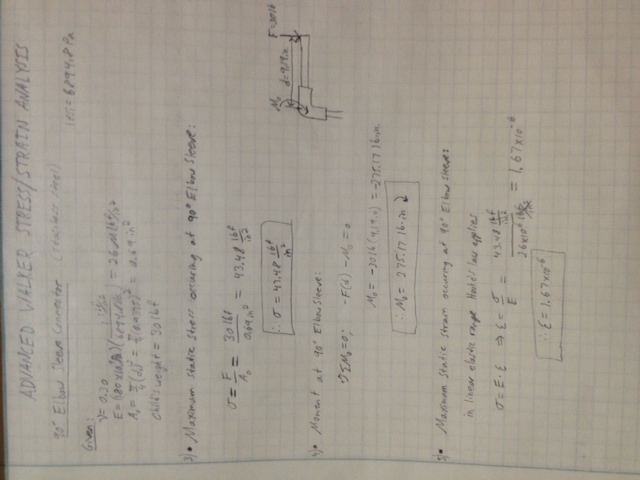 ADVANCED WALKER STRESS/STRAIN ANALYSIS
90° Elbow Sleeve Connector (stainless steel)
1 PSI = 6894.8 Pa
Given:
ν = 0.30
E = (180 x 10⁹ Pa)(1 lbf/in² / 6894.8 Pa) = 26 Mlbf/in²
A₀ = π/4 (d)² = π/4 (0.9375)² = 0.69 in²
Child's weight = 30 lbf
3) • Maximum static stress occuring at 90° Elbow Sleeve:
σ = F/A₀ = 30 lbf / 0.69 in² = 43.48 lbf/in²
∴ σ = 43.48 lbf/in²
M₀
F = 30 lb
4) • Moment at 90° Elbow Sleeve:
ΣM₀ = 0; -F(d) - M₀ = 0
= -275.17 lb·in
∴ M₀ = 275.17 lb·in
5) • Maximum static strain occuring at 90° Elbow Sleeve:
in linear elastic range Hooke's law applies
σ = E·ε ⇒ ε = σ/E = 43.48 lbf/in² / 26x10⁶ lbf/in² = 1.67x10⁻⁶
∴ ε = 1.67x10⁻⁶